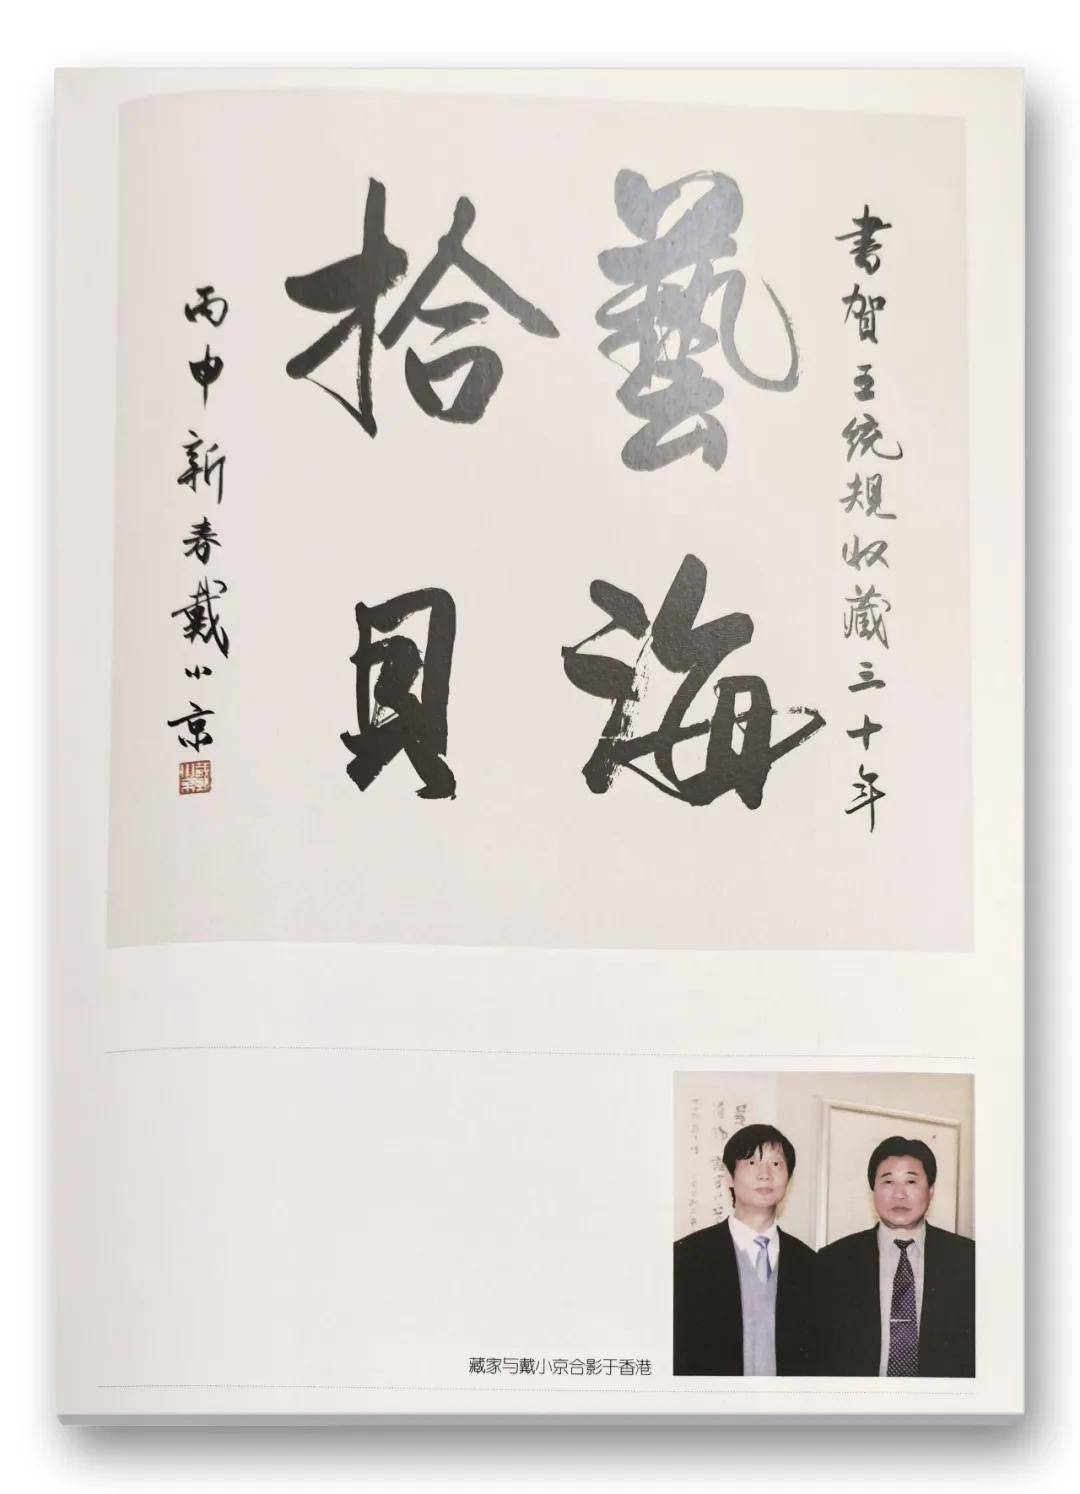 書賀王統規收藏三十年
藝海
拾貝
丙申新春戴小京
藏家与戴小京合影于香港